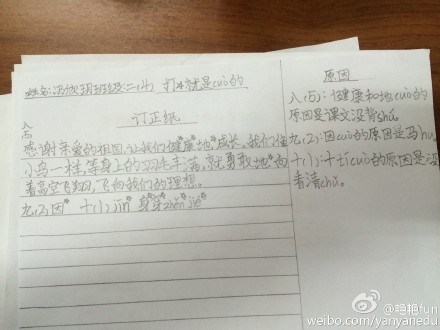 班级二(4) 打*就是cuò的
订正纸
八(5)
感谢亲爱的祖国,让我们健康地成长。我们像
小鸟一样,等身上的羽毛丰满,就勇敢地向
着高空飞翔,飞向我们的理想。
九(2)因 十(1)jīn
原因
八(5):健康和地cuò的
原因是课文没背shú。
九(2):因cuò的原因是马hu
十(1):十cuò的原因是没
看清chǔ。
@艳艳fun
weibo.com/yanyanedu